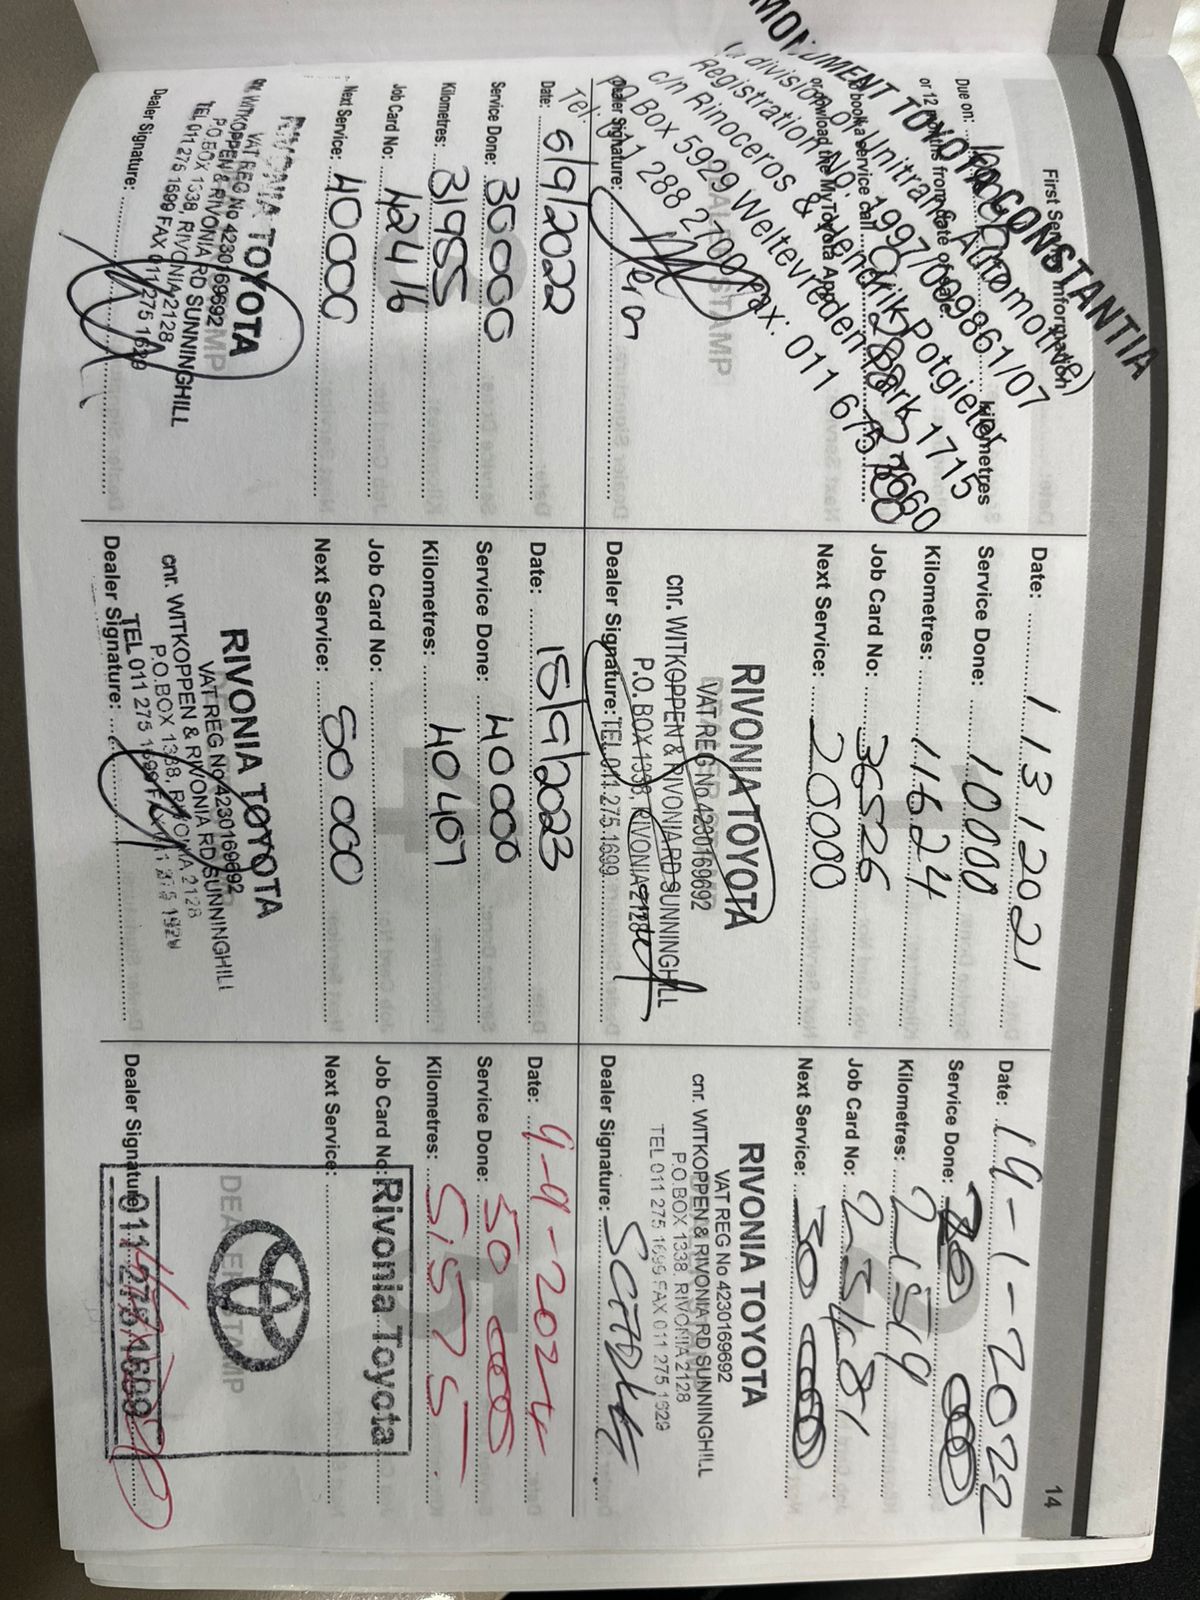 14
First Service Information
Due on:
kilometres
or 12 months from date of purchase
To book a service call
or download the MyToyota App
MONUMENT TOYOTA CONSTANTIA
(a division of Unitrans Automotive)
Registration No: 1997/009861/07
c/n Rinoceros & Hendrik Potgieter
P O Box 5929 Weltevreden Park 1715
Tel: 011 288 2700 Fax: 011 675 2660
Dealer Signature:
Date: 1 13 1 2021
Service Done: 10000
Kilometres: 11624
Job Card No: 36526
Next Service: 20000
RIVONIA TOYOTA
VAT REG No 4230169692
cnr. WITKOPPEN & RIVONIA RD SUNNINGHILL
P.O. BOX 1338, RIVONIA 2128
Dealer Signature: TEL 011 275 1699
Date: 19-1-2022
Service Done: 20 000
Kilometres: 21519
Job Card No: 25481
Next Service: 30 000
RIVONIA TOYOTA
VAT REG No 4230169692
cnr. WITKOPPEN & RIVONIA RD SUNNINGHILL
P.O.BOX 1338, RIVONIA 2128
TEL 011 275 1699 FAX 011 275 1629
Dealer Signature:
Date: 5/9/2022
Service Done: 30000
Kilometres: 31985
Job Card No: 42416
Next Service: 40000
RIVONIA TOYOTA
VAT REG No 4230169692
cnr. WITKOPPEN & RIVONIA RD SUNNINGHILL
P.O.BOX 1338, RIVONIA 2128
TEL 011 275 1699 FAX 011 275 1629
Dealer Signature:
Date: 15/9/2023
Service Done: 40000
Kilometres: 40407
Job Card No:
Next Service: 50 000
RIVONIA TOYOTA
VAT REG No 4230169692
cnr. WITKOPPEN & RIVONIA RD SUNNINGHILL
P.O.BOX 1338, RIVONIA 2128
TEL 011 275 1699 FAX 011 275 1629
Dealer Signature:
Date: 9-9-2024
Service Done: 50 000
Kilometres: 51575
Job Card No:
Next Service:
Rivonia Toyota
DEALER STAMP
011 275 1699
Dealer Signature: